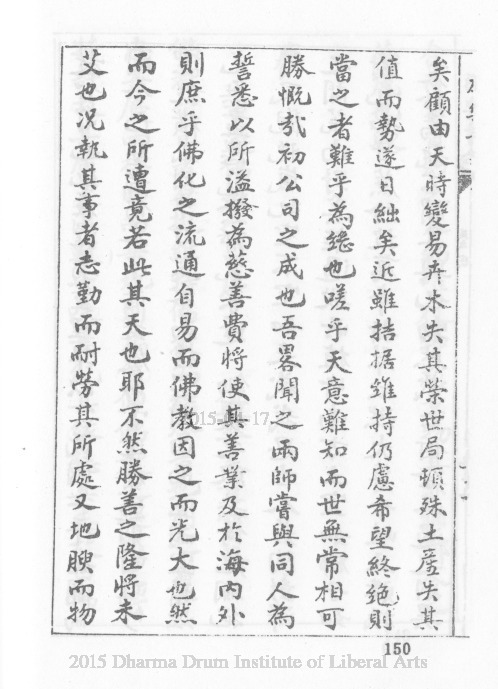 矣顧由天時變易卉木失其榮世局頓殊土產失其
值而勢遂日絀矣近雖拮据維持仍慮希望終絶則
當之者難乎為繼也嗟乎天意難知而世無常相可
勝慨哉初公司之成也吾畧聞之兩師嘗與同人為
誓悉以所溢撥為慈善費將使其善業及於海內外
則庶乎佛化之流通自易而佛教因之而光大也然
而今之所遭竟若此其天也耶不然勝善之隆將未
艾也况執其事者志勤而耐勞其所處又地腴而物
150
2015 Dharma Drum Institute of Liberal Arts